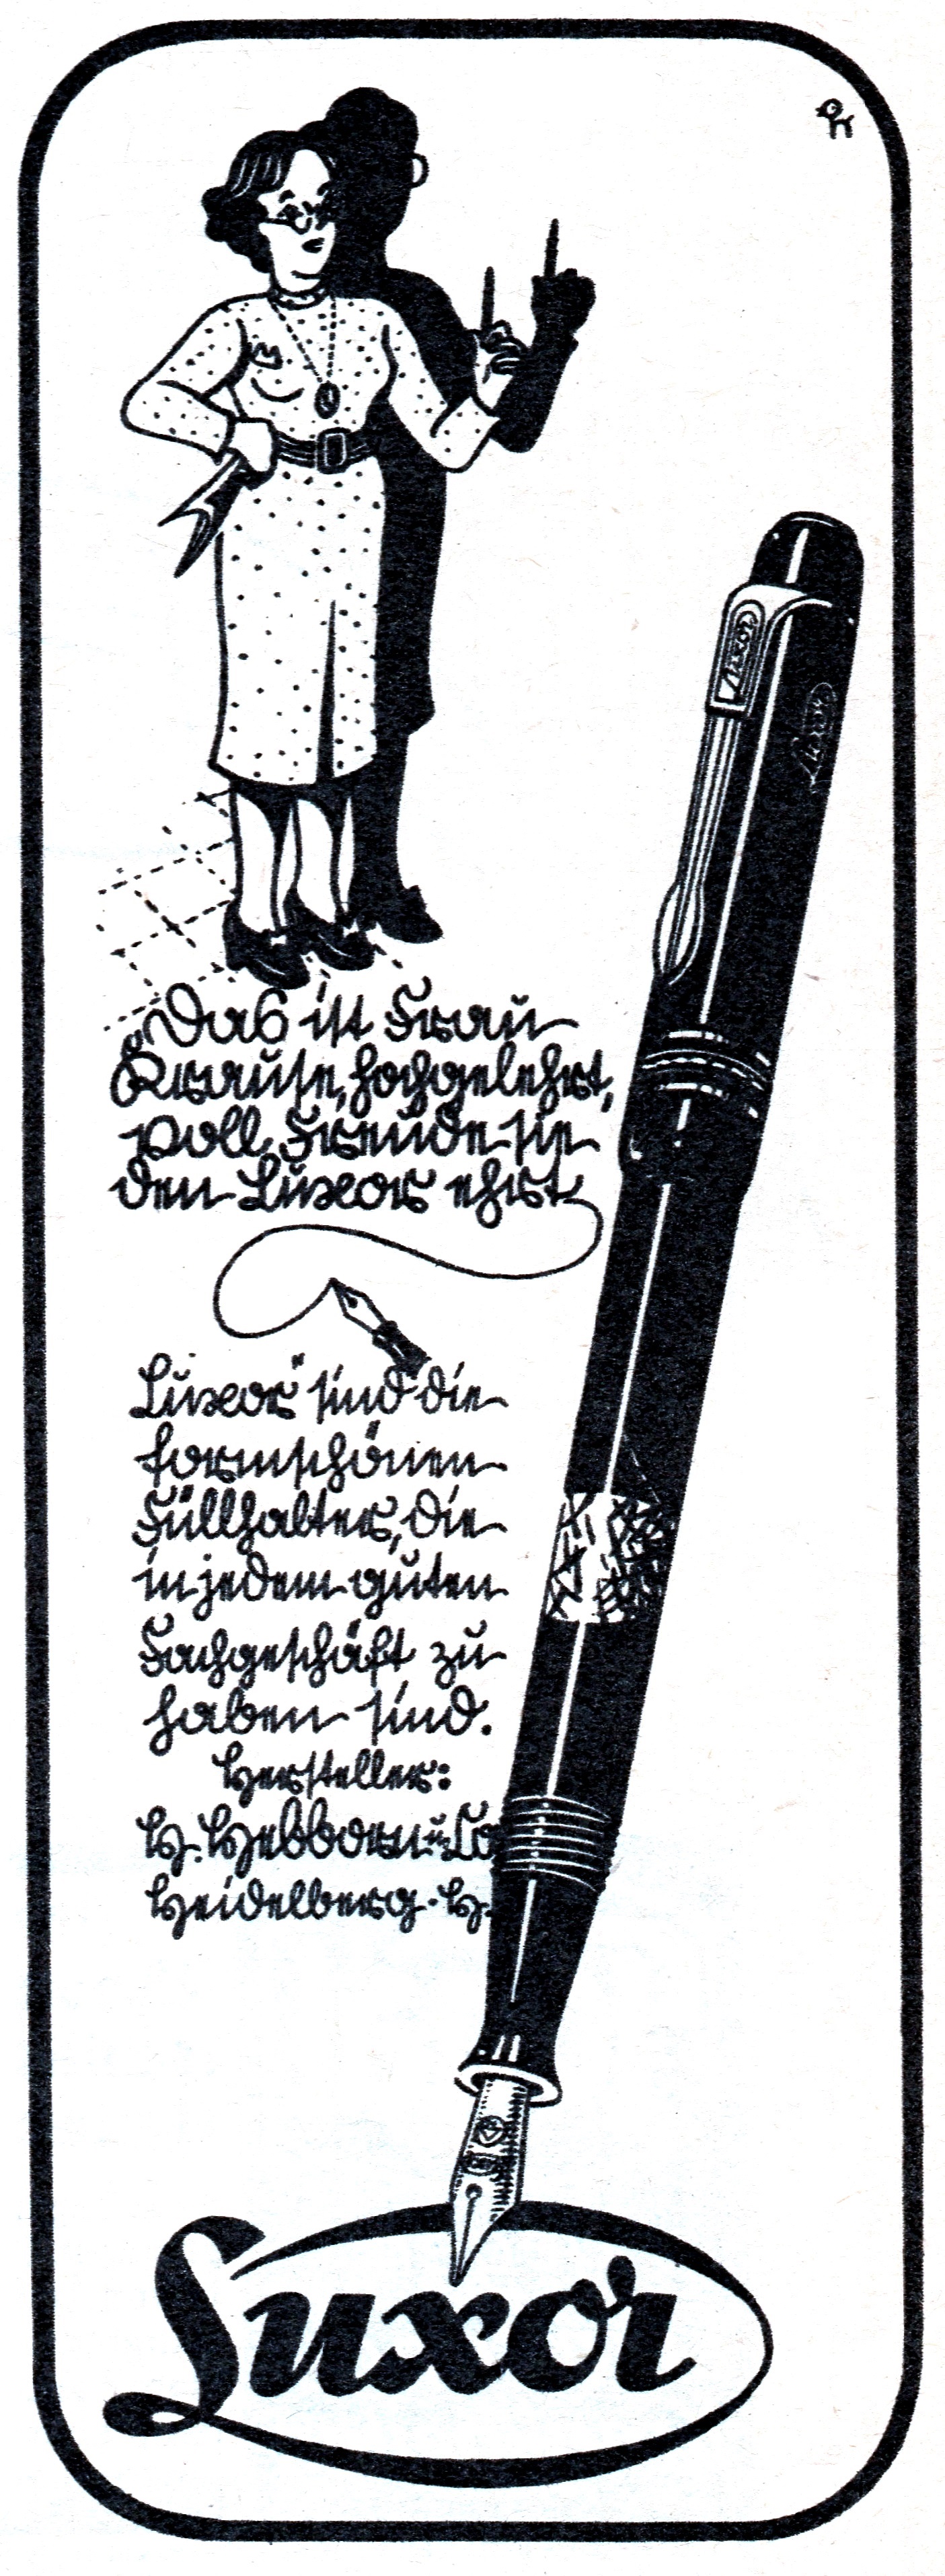 „Das ist Frau
Krause, hochgelehrt,
voll Freude sie
den Luxor ehrt
Luxor" sind die
formschönen
Füllhalter, die
in jedem guten
Fachgeschäft zu
haben sind.
Hersteller:
H. Hebborn u. Co
Heidelberg - H.
Luxor
Luxor
Luxor